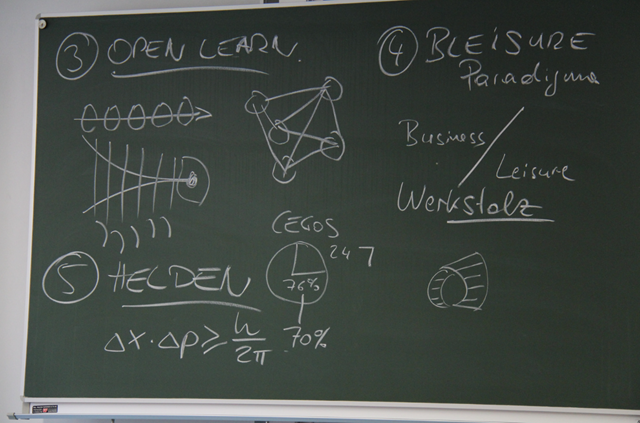 ③ OPEN LEARN.
④ BLEISURE
Paradigma
Business
Leisure
Werkstolz
CEGOS
24 7
76%
70%
⑤ HELDEN
Δx·Δp ≥ h/2π